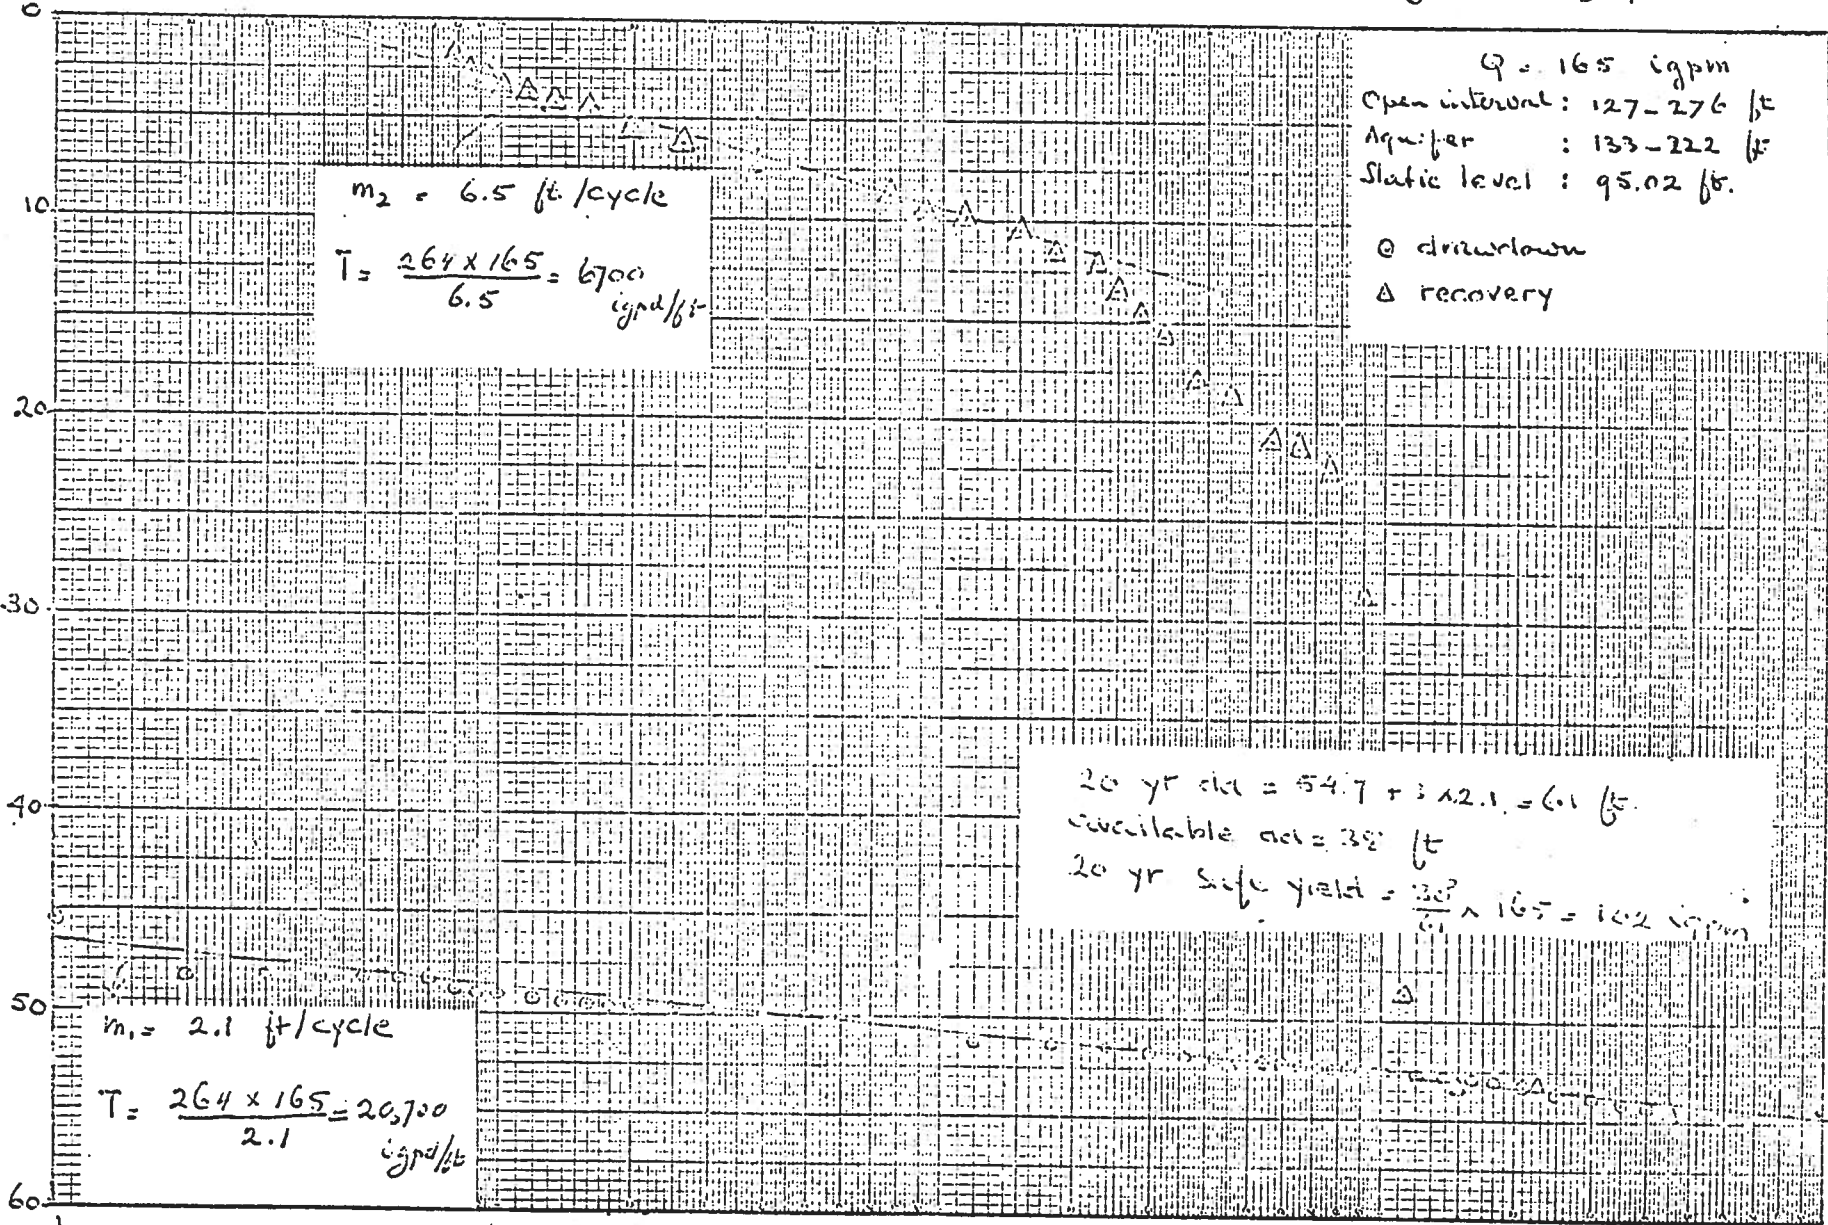 0
10
20
30
40
50
60
Q = 165 igpm
Open interval : 127-276 ft
Aquifer : 133-222 ft
Static level : 95.02 ft.
⊙ drawdown
△ recovery
m₂ = 6.5 ft./cycle
T = 264 x 165 / 6.5 = 6700 igpd/ft
20 yr dd = 54.7 + 3 x 2.1 = 61 ft.
available dd = 38 ft
20 yr safe yield = 38 / 61 x 165 = 102 igpm
m₁ = 2.1 ft/cycle
T = 264 x 165 / 2.1 = 20,700 igpd/ft
1